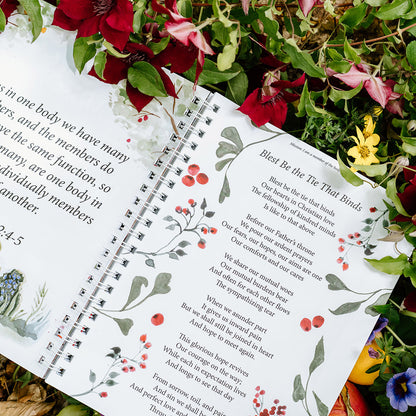 is in one body we have many
mbers, and the members do
ve the same function, so
many, are one body in
individually members
nother.
2.4,5
Blest Be the Tie That Binds
Blest be the tie that binds
Our hearts in Christian love
The fellowship of kindred minds
Is like to that above
Before our Father's throne
We pour our ardent prayers
Our fears, our hopes, our aims are one
Our comforts and our cares
We share our mutual woes
Our mutual burdens bear
And often for each other flows
The sympathizing tear
When we asunder part
It gives us inward pain
But we shall still be joined in heart
And hope to meet again
This glorious hope revives
Our courage on the way
While each in expectation lives
And longs to see that day
From sorrow, toil, and pain
And sin, we shall be
And perfect love and
Through